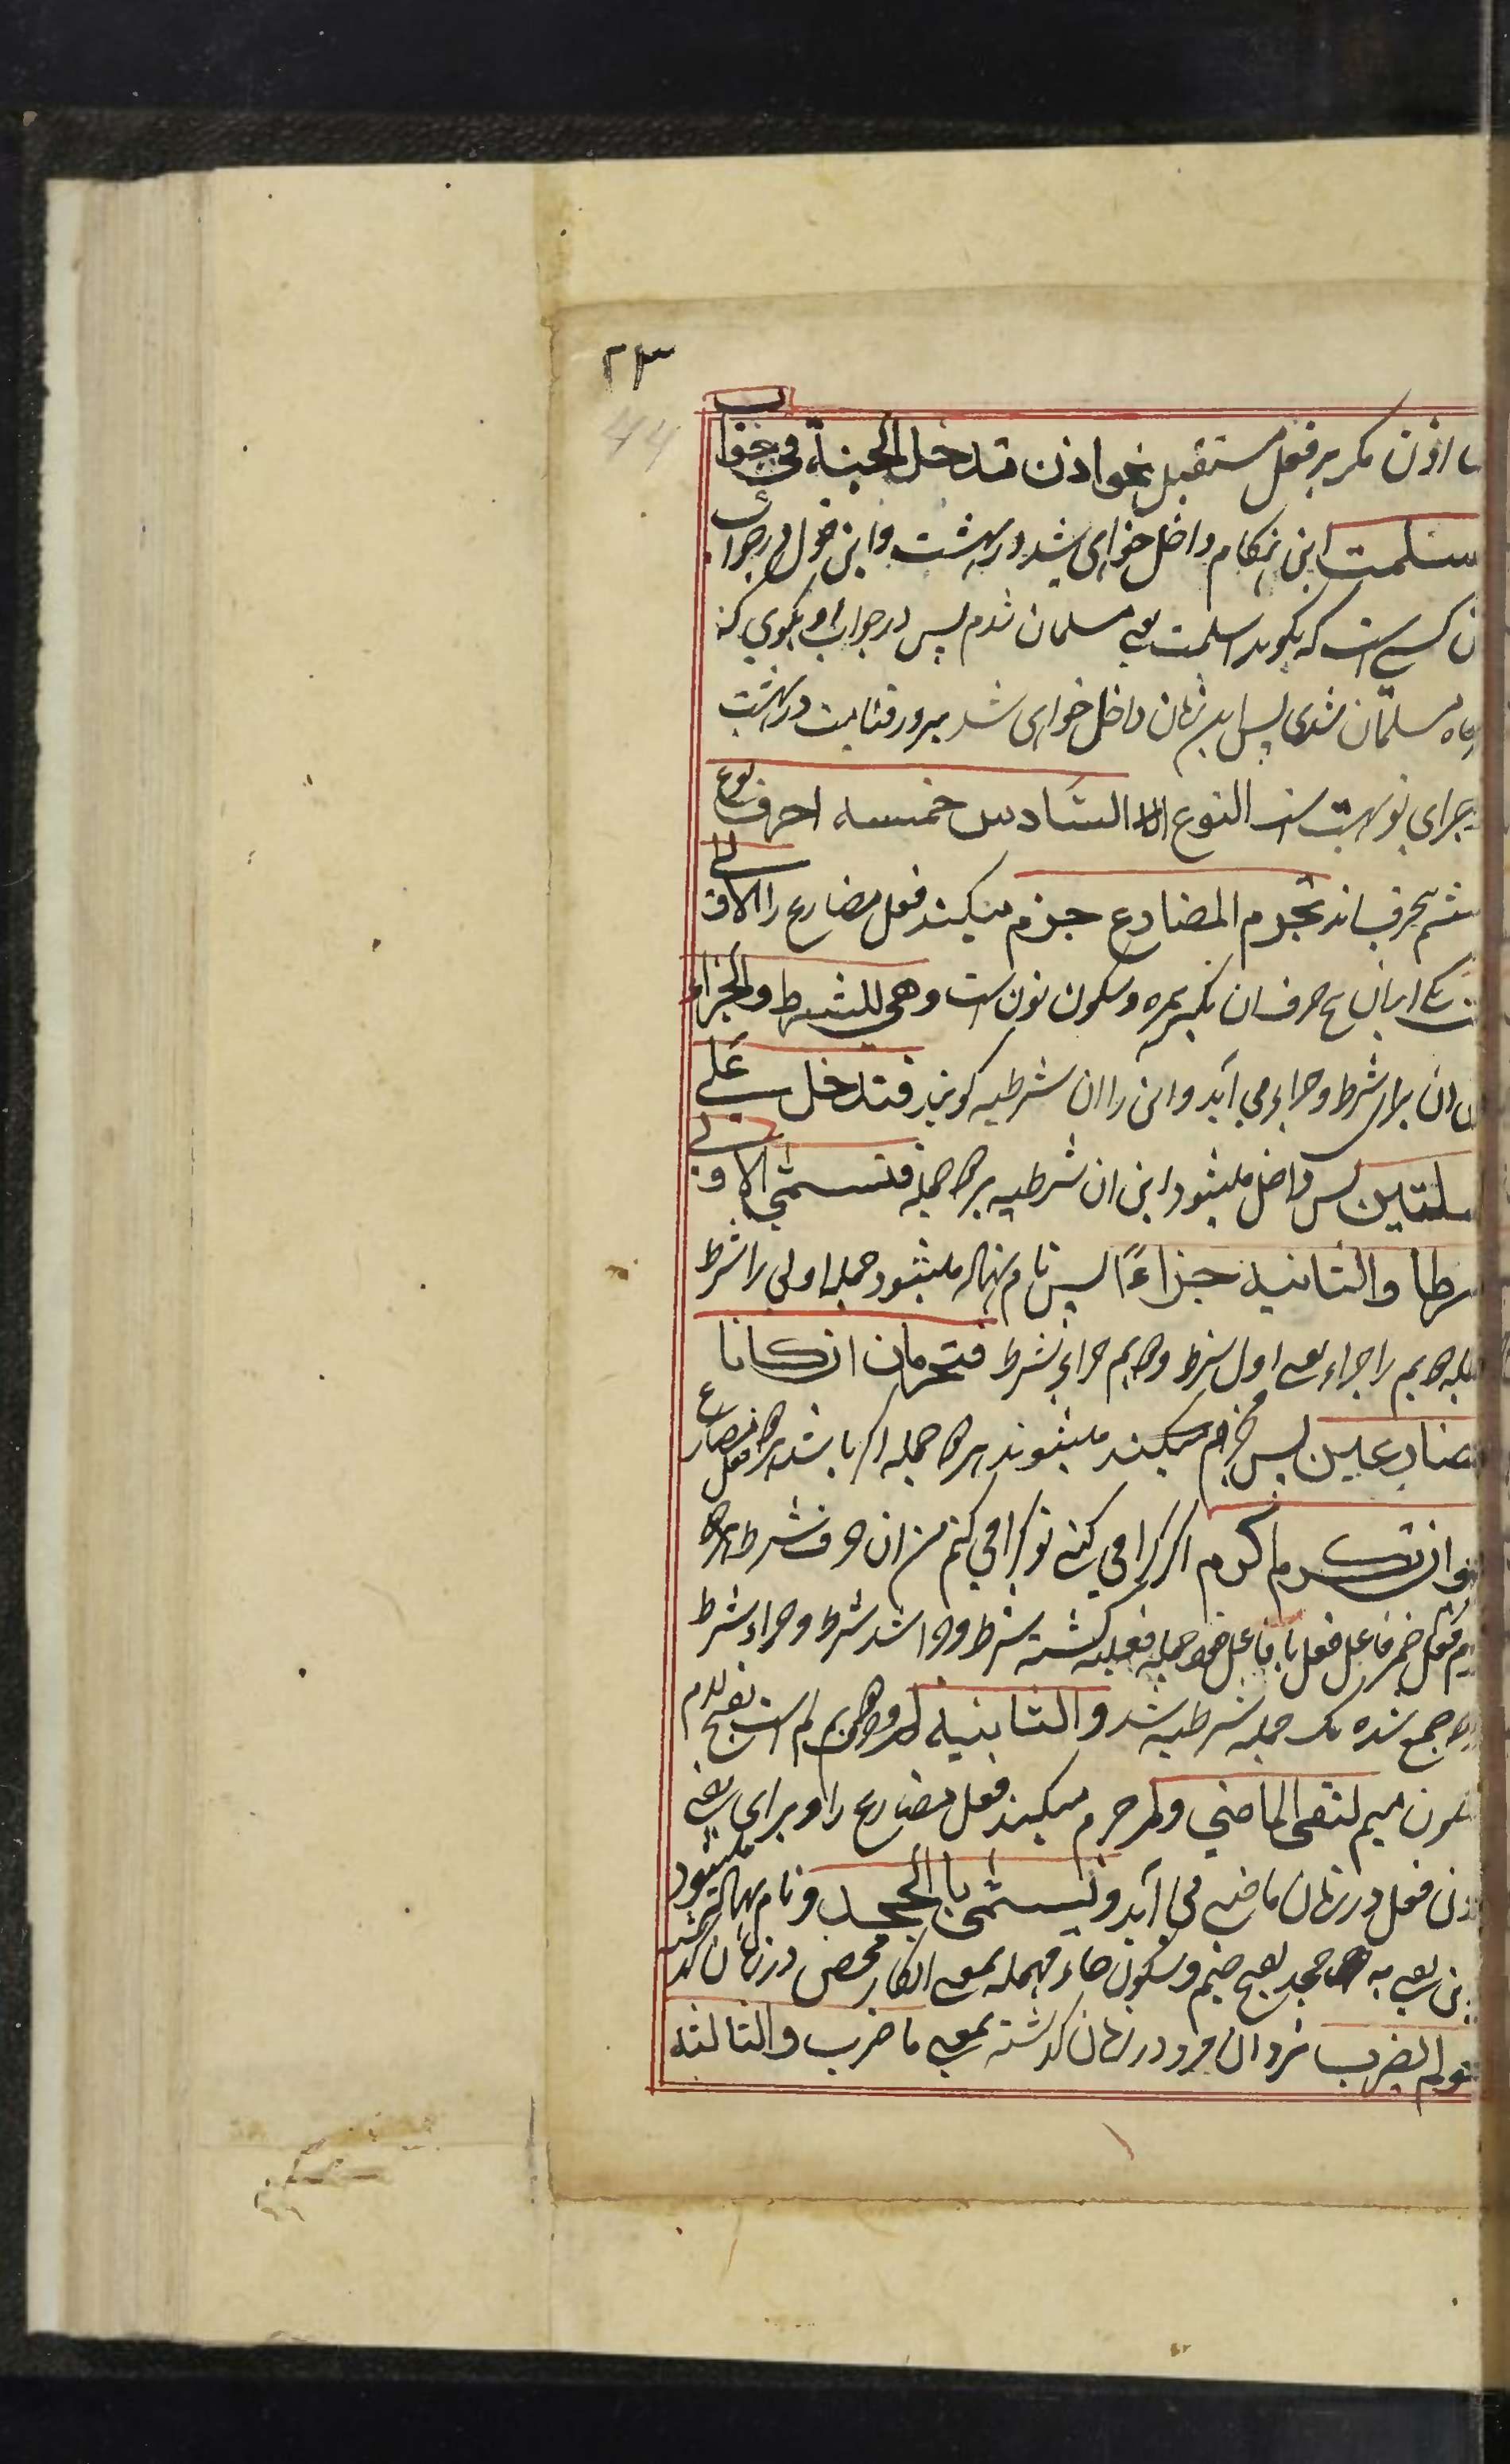 ۲۳
44
اذن مکر بر فعل مستقبل نحو اذن تدخل الجنة فی جواب
سلمت این هنگام داخل خواهی شد در بهشت و این قول در جواب
کسی است که بگوید اسلمت یعنی مسلمان شدم پس در جواب او بگوی که
مسلمان شدی پس این زمان داخل خواهی شد در بهشت
جزای تو بهشت است النوع السادس خمسة احرف نوع
ششم پنج حرف اند تجزم المضارع جزم میکنند فعل مضارع را الاولی
یکی ازان پنج حرف ان بکسر همزه و سکون نون است وهی للشرط والجزاء
ان برای شرط و جزا می آید و این را ان شرطیه گویند فتدخل علی
ملتین پس داخل میشود این ان شرطیه بر دو جمله فتسمی الاولی
رطا والثانیة جزاءً پس نام نهاده میشود جمله اولی را شرط
دویم را جزاء یعنی اول شرط دویم جزاء شرط فتجزمان ان کانا
مضارعین پس جزم میکند میشوند هر دو جمله اگر باشند هر دو فعل مضارع
ان تکرم اکرم اگر اکرامی کنی تو اکرامی کنم من ان حرف شرط
فعل ضمیر فاعل فعل با فاعل خود جمله فعلیه گشته شرط و جزاء شرط
جمع شده یک جمله شرطیه شد والثانیة لم دویم لم است بفتح لام
سکون میم لنفی الماضی ولم جزم میکند فعل مضارع را و برای نفی
دن فعل در زمان ماضی می آید وتسمی بالجحد و نام نهاده میشود
این یعنی به جحد بفتح جیم و سکون حاء مهمله بمعنی انکار محض در زمان گذشته
لم یضرب نزد ان مرد در زمان گذشته بمعنی ما ضرب والثالثة